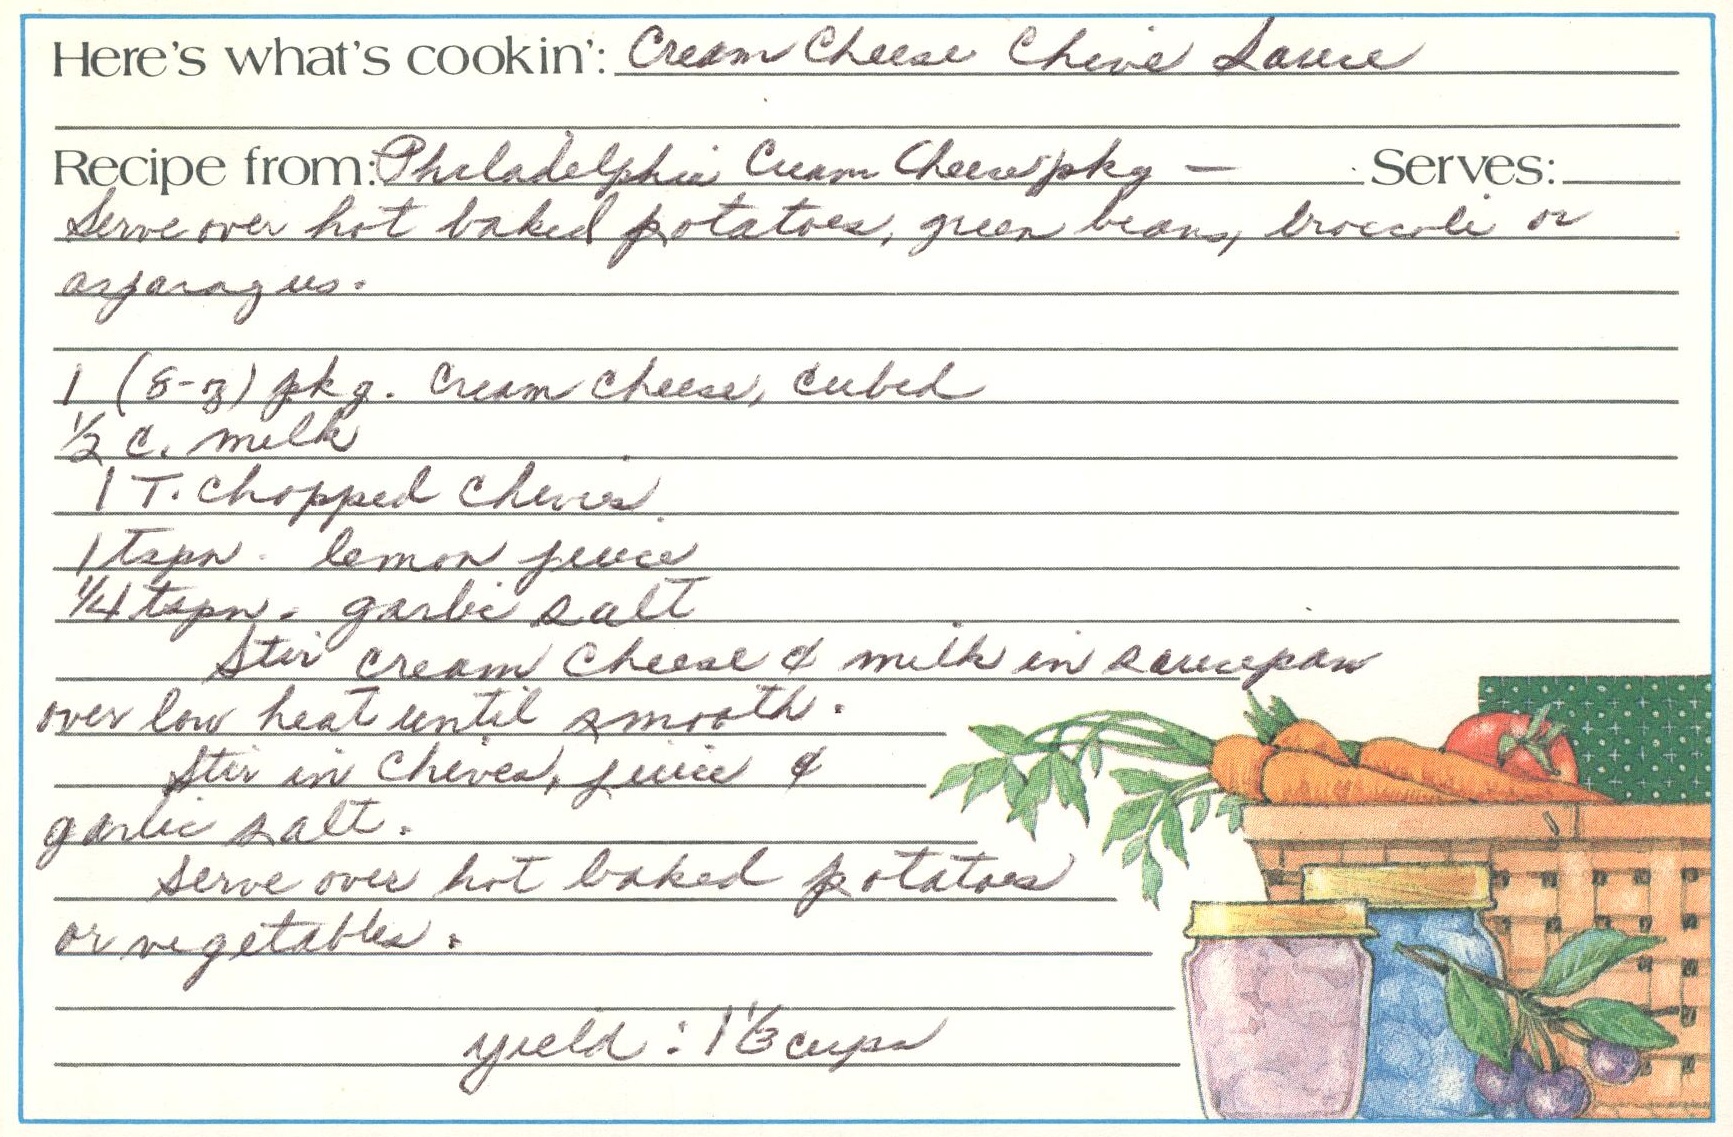 Here's what's cookin': Cream Cheese Chive Sauce
Recipe from: Philadelphia Cream Cheese pkg — Serves:
Serve over hot baked potatoes, green beans, broccoli or
asparagus.
1 (8-oz) pkg. cream cheese, cubed
1/2 c. milk
1 T. chopped chives
1 tspn. lemon juice
1/4 tspn. garlic salt
Stir cream cheese & milk in saucepan
over low heat until smooth.
Stir in chives, juice &
garlic salt.
Serve over hot baked potatoes
or vegetables.
yield: 1 1/3 cups